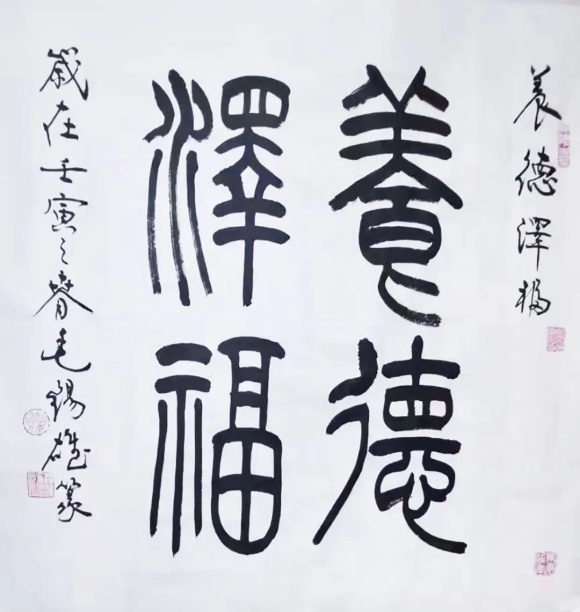 養德澤福
養德
澤福
歲在壬寅之春毛錫雄篆